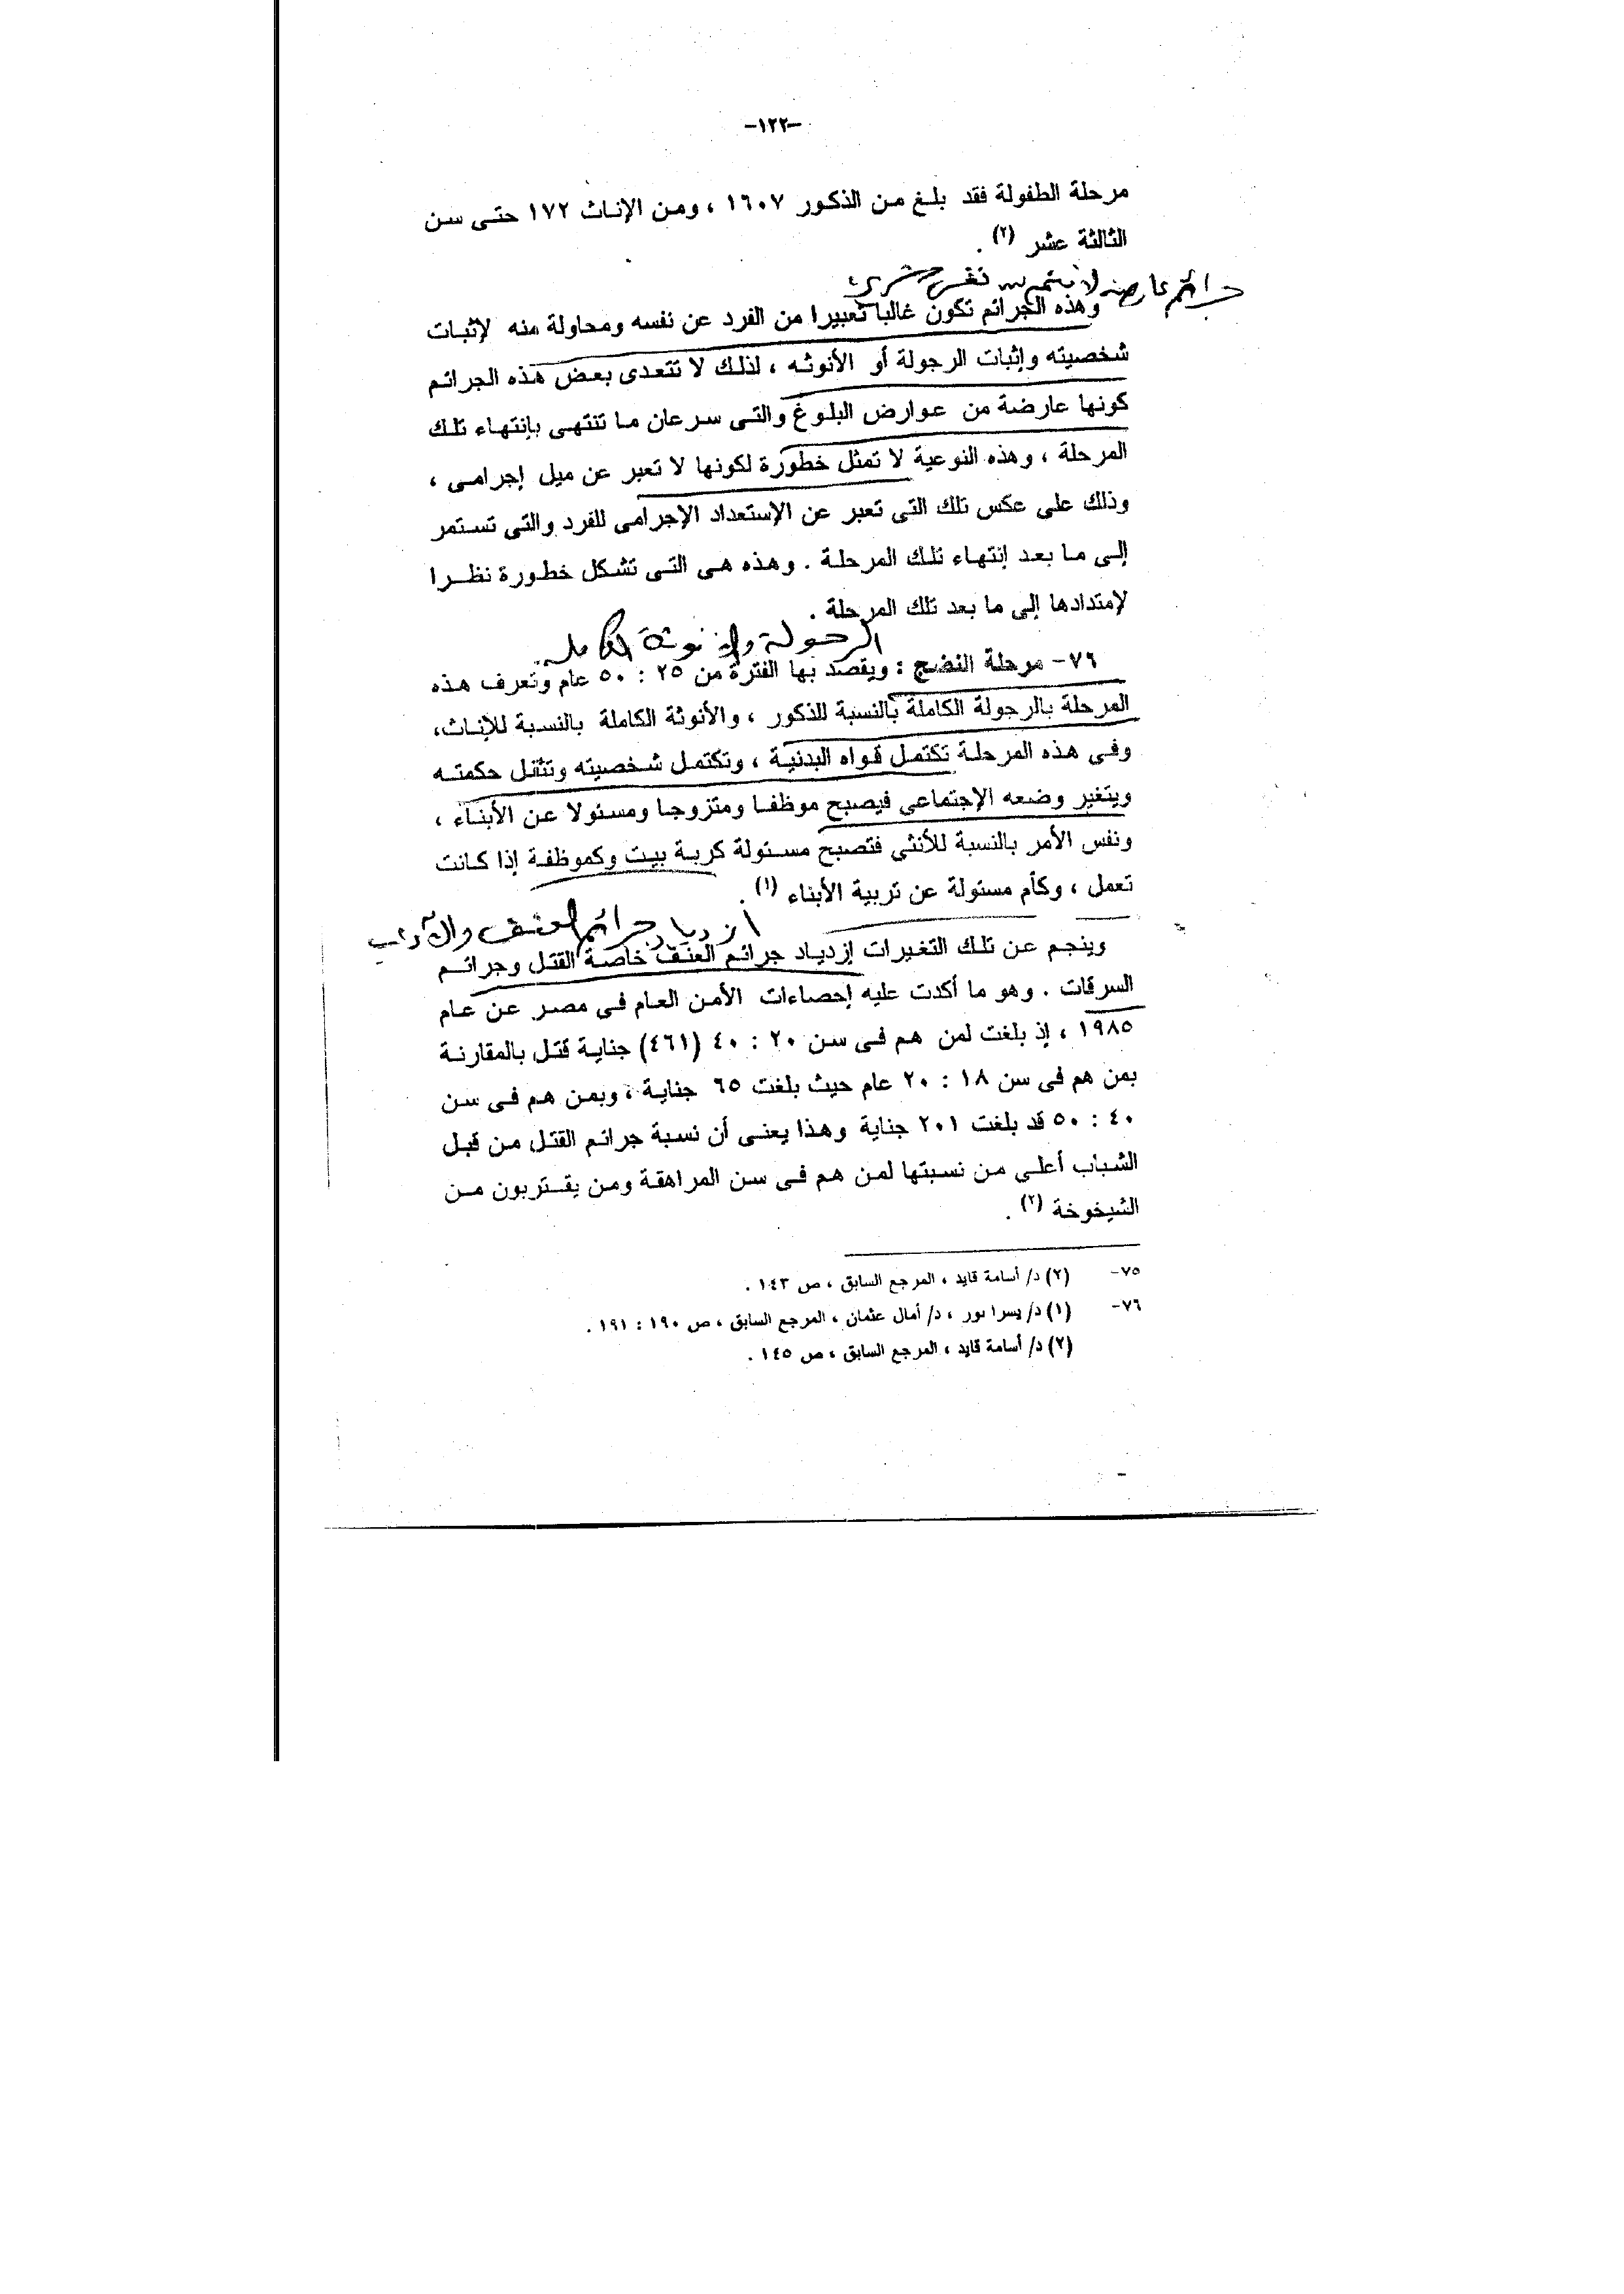 -١٢٢-
مرحلة الطفولة فقد بلغ من الذكور ١٦٠٧ ، ومن الإناث ١٧٢ حتى سن
الثالثة عشر (٢) .
جرائم عارضة لا
وهذه الجرائم تكون غالبا تعبيرا من الفرد عن نفسه ومحاولة منه لإثبات
شخصيته وإثبات الرجولة أو الأنوثه ، لذلك لا تتعدى بعض هذه الجرائم
كونها عارضة من عوارض البلوغ والتى سرعان ما تنتهى بإنتهاء تلك
المرحلة ، وهذه النوعية لا تمثل خطورة لكونها لا تعبر عن ميل إجرامى ،
وذلك على عكس تلك التى تعبر عن الإستعداد الإجرامى للفرد والتى تستمر
إلى ما بعد إنتهاء تلك المرحلة . وهذه هى التى تشكل خطورة نظرا
لإمتدادها إلى ما بعد تلك المرحلة .
الرجولة والأنوثة الكاملة
٧٦- مرحلة النضج : ويقصد بها الفترة من ٢٥ : ٥٠ عام وتعرف هذه
المرحلة بالرجولة الكاملة بالنسبة للذكور ، والأنوثة الكاملة بالنسبة للإناث،
وفى هذه المرحلة تكتمل قواه البدنية ، وتكتمل شخصيته وتثقل حكمته
ويتغير وضعه الإجتماعى فيصبح موظفا ومتزوجا ومسئولا عن الأبناء ،
ونفس الأمر بالنسبة للأنثى فتصبح مسئولة كربة بيت وكموظفة إذا كانت
تعمل ، وكأم مسئولة عن تربية الأبناء (١) .
ازدياد جرائم العنف
وينجم عن تلك التغيرات إزدياد جرائم العنف خاصة القتل وجرائم
السرقات . وهو ما أكدت عليه إحصاءات الأمن العام فى مصر عن عام
١٩٨٥ ، إذ بلغت لمن هم فى سن ٢٠ : ٤٠ (٤٦١) جناية قتل بالمقارنة
بمن هم فى سن ١٨ : ٢٠ عام حيث بلغت ٦٥ جناية ، وبمن هم فى سن
٤٠ : ٥٠ قد بلغت ٢٠١ جناية وهذا يعنى أن نسبة جرائم القتل من قبل
الشباب أعلى من نسبتها لمن هم فى سن المراهقة ومن يقتربون من
الشيخوخة (٢) .
٧٥- (٢) د/ أسامة قايد ، المرجع السابق ، ص ١٤٣ .
٧٦- (١) د/ يسرا نور ، د/ أمال عثمان ، المرجع السابق ، ص ١٩٠ : ١٩١ .
(٢) د/ أسامة قايد ، المرجع السابق ، ص ١٤٥ .